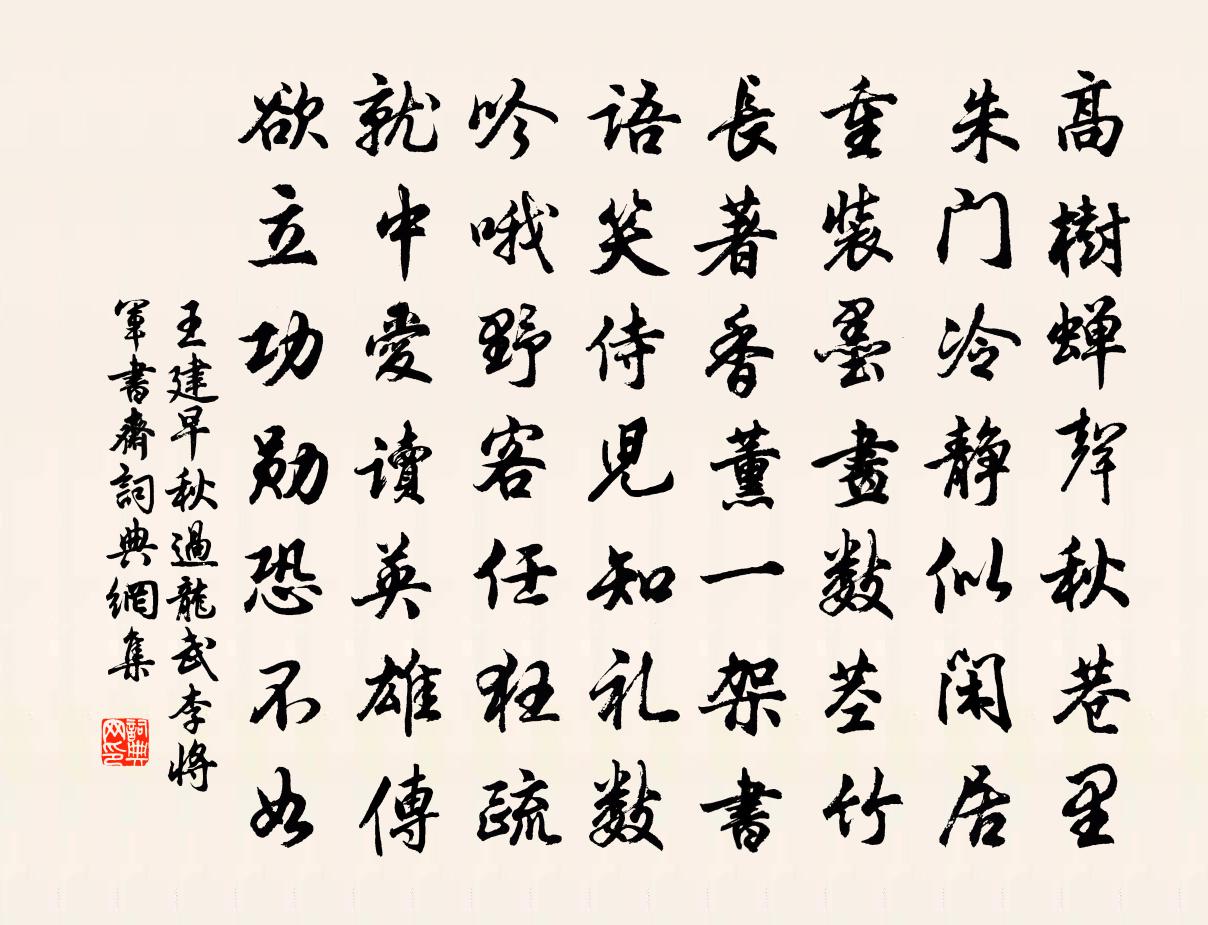 高樹蝉聲秋巷里
朱门冷静似闲居
重装墨畫數茎竹
長著香薰一架書
語笑侍児知礼數
吟哦野客任狂疏
就中愛讀英雄傳
欲立功勋恐不如
王建早秋過龍武李将
軍書齋詞典網集
詞典网印